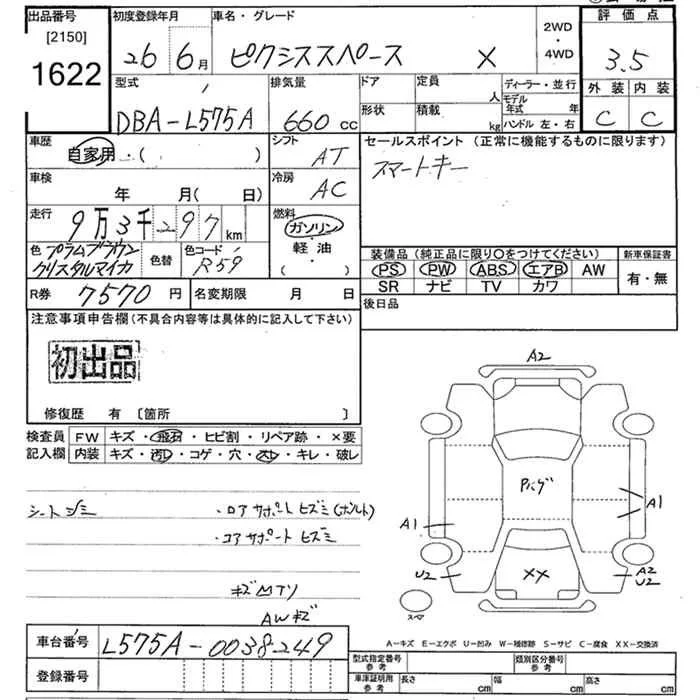 出品番号 初度登録年月 車名・グレード 2WD・4WD 評価点
[2150]
1622
26年 6月 ピクシススペース X 3.5
型式 排気量 ドア 定員 人 ディーラー・並行 外装 内装
DBA-L575A 660cc 形状 積載 kg モデル年式 年 C C
ハンドル 左・右
車歴 シフト セールスポイント (正常に機能するものに限ります)
自家用・( ) AT スマートキー
車検 年 月(日) 冷房 AC
走行 9万3千297km 燃料 ガソリン
軽・油
・( )
色 プラムブラウンクリスタルマイカ 色替 色コード R59
装備品 (純正品に限り○をつけてください) 新車保証書
PS PW ABS エアB AW 有・無
SR ナビ TV カワ
R券 7570円 名変期限 月 日 後日品
注意事項申告欄(不具合内容等は具体的に記入して下さい)
初出品
修復歴 有 [箇所 ]
検査員 FW キズ・飛石・ヒビ割・リペア跡・×要
記入欄 内装 キズ・汚レ・コゲ・穴・スレ・キレ・破レ
シートシミ ・ロアサポートヒズミ(ボルト)
・コアサポート ヒズミ
AWキズ
A2
A1
A1
U2
XX
A2
U2
スペア
A-キズ E-エクボ U-凹み W-補修跡 S-サビ C-腐食 XX-交換済
車台番号 L575A-0038249
登録番号
型式指定番号 参考 類別区分番号 参考
車庫証明用 参考 長さ cm 幅 cm 高さ cm